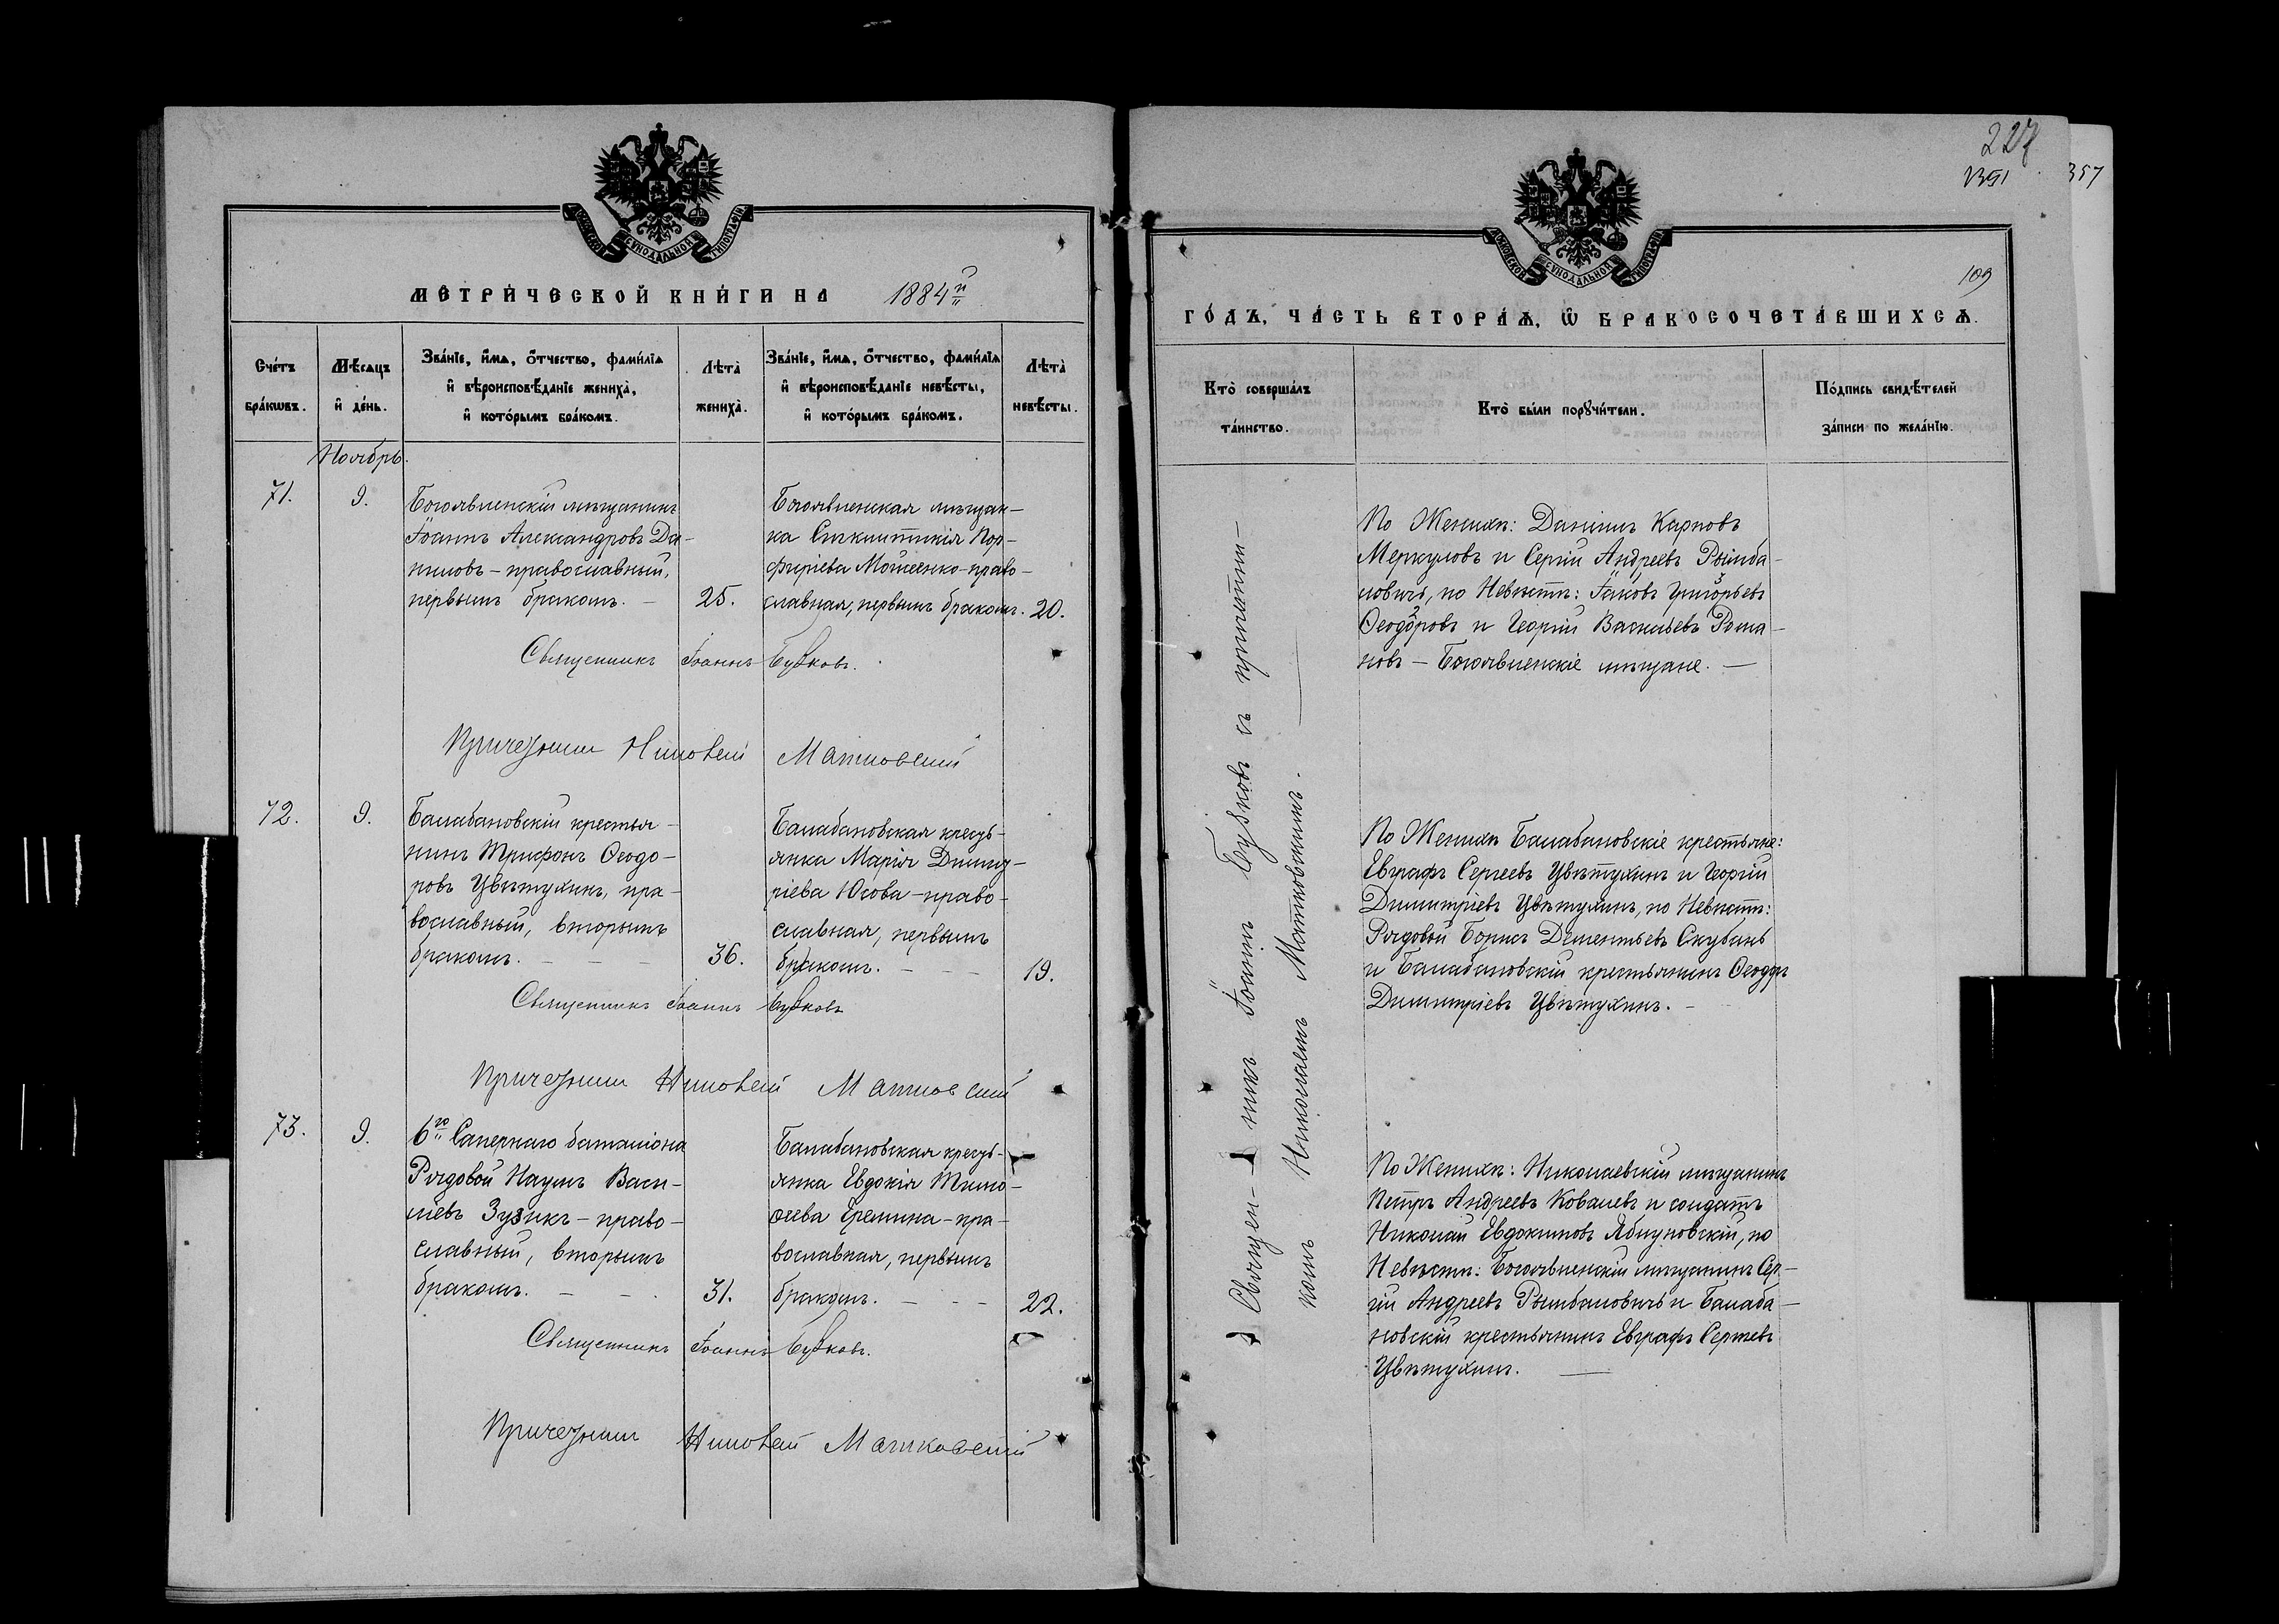 МОСКОВСКОЙ СѴНОДАЛЬНОЙ ТИПОГРАФІИ
МЕТРИ́ЧЕСКОЙ КНИ́ГИ НА 1884й
Сче́тъ бра́кѡвъ.
Мѣ́сяцъ и де́нь.
Зва́нїе, и́мѧ, о́тчество, фами́лїѧ
и҆ вѣроисповѣ́данїе жениха̀,
и҆ кото́рымъ бра́комъ.
Лѣта̀
жениха̀.
Зва́нїе, и́мѧ, о́тчество, фами́лїѧ
и҆ вѣроисповѣ́данїе невѣ́сты,
и҆ кото́рымъ бра́комъ.
Лѣта̀
невѣ́сты.
Ноябрь.
71.
9.
Богоявленскій мѣщанинъ
Іоаннъ Александровъ Да-
ниловъ – православный,
первымъ бракомъ. –
25.
Богоявленская мѣщан-
ка Сигклитикія Пор-
фиріева Мойсеенко – право-
славная, первымъ бракомъ.
20.
Священникъ Іоаннъ Бубковъ.
Причетникъ Николай Матковскій
72.
9.
Балабановскій крестья-
нинъ Трифонъ Ѳеодо-
ровъ Цвѣтухинъ, пра-
вославный, вторымъ
бракомъ. – – –
36.
Балабановская кресть-
янка Марія Димит-
ріева Юсова – право-
славная, первымъ
бракомъ. – – –
19.
Священникъ Іоаннъ Бубковъ
Причетникъ Николай Матковскій
73.
9.
6го Сапернаго баталіона
Рядовой Наумъ Васи-
ліевъ Зузикъ – право-
славный, вторымъ
бракомъ. – –
31.
Балабановская кресть-
янка Евдокія Тимо-
ѳеева Еремина – пра-
вославная, первымъ
бракомъ. – – –
22.
Священникъ Іоаннъ Бубковъ.
Причетникъ Николай Матковскій
227
357
109
МОСКОВСКОЙ СѴНОДАЛЬНОЙ ТИПОГРАФІИ
ГО́ДЪ, ЧА́СТЬ ВТОРА́Ѧ, Ѡ БРАКОСОЧЕТА́ВШИХСѦ.
Кто̀ соверша́лъ
та́инство.
Кто̀ бы́ли порꙋчи́тели.
По́дпись свидѣ́телей
за́писи по жела́нїю.
Священ- никъ Іоаннъ Бубковъ съ причетни-
комъ Николаемъ Матковскимъ.
По Женихѣ: Даніилъ Карповъ
Меркуловъ и Сергій Андреевъ Рымба-
ловичъ, по Невѣстѣ: Іаковъ Григорьевъ
Ѳеодоровъ и Георгій Васильевъ Рома-
новъ – Богоявленскіе мѣщане. –
По Женихѣ Балабановскіе крестьяне:
Евграфъ Сергеевъ Цвѣтухинъ и Георгій
Димитріевъ Цвѣтухинъ, по Невѣстѣ:
Рядовой Борисъ Дементьевъ Скубинъ
и Балабановскій крестьянинъ Ѳеодоръ
Димитріевъ Цвѣтухинъ. –
По Женихѣ: Николаевскій мѣщанинъ
Петръ Андреевъ Ковалевъ и солдатъ
Николай Евдокимовъ Яблуновскій, по
Невѣстѣ: Богоявленскій мѣщанинъ Сер-
гій Андреевъ Рымбаловичъ и Балаба-
новскій крестьянинъ Евграфъ Сергеевъ
Цвѣтухинъ. –